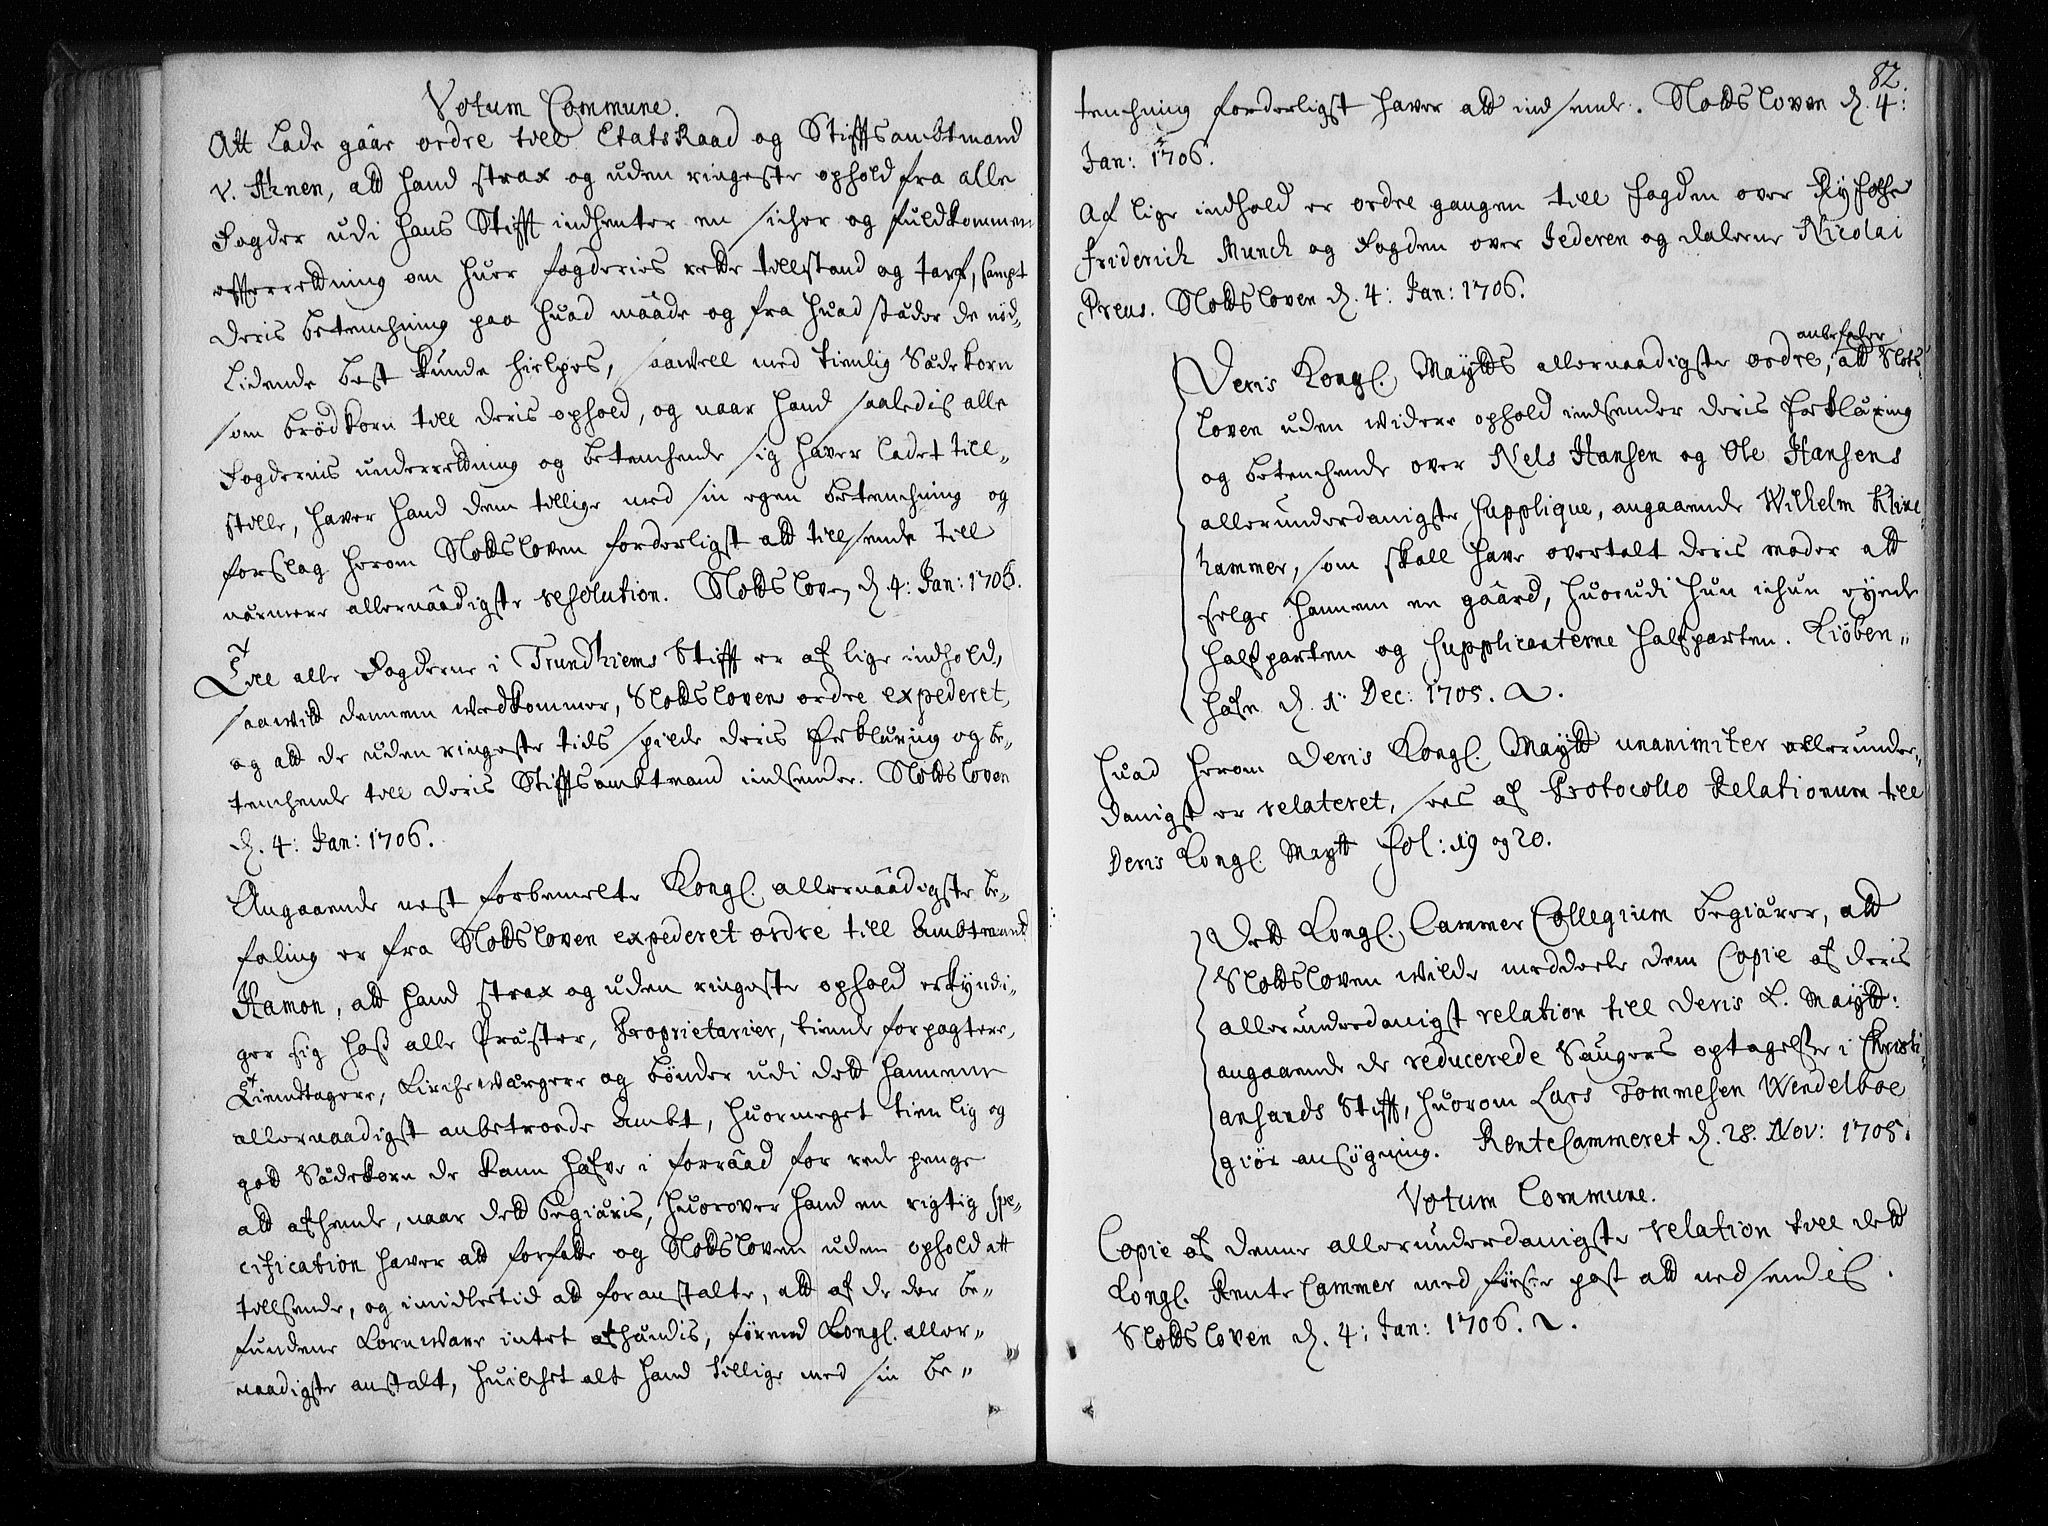 Votum Commune.
Att Lade gaar ordre till Etats Raad og Stiffts ambtmand
v. Ahnen, att hand strax og uden ringeste ophold fra alle
Fogder udi hans Stifft indhenter en sicher og fuldkommen
effterrettning om huer fogderies rette tillstand og tarf, sampt
deris betenchning paa huad maade og fra huad stæder de nöd-
Lidende best kunde hielpes, saavell med tienlig Sædekorn
som brödkorn till deris ophold, og naar hand saaledis alle
Fogdernis underrettning og betenchende sig haver ladet till-
stille, haver hand dem tillige med sin egen betenchning og
forslag herom Slottsloven forderligst att tillsende till
nærmere allernaadigste resolution. Slottsloven d. 4: Jan: 1706.
Till alle Fogderne i Trundhiems Stifft er af lige indhold,
saavit dennem vedkommer, Slottsloven ordre expederet,
og att de uden ringeste tids spilde deris Erklæring og be-
tenchende till deris Stiffts ambtmand indsender. Slottsloven
d. 4: Jan: 1706.
Angaaende nest forbemelte Kongl. allernaadigste be-
faling er fra Slottsloven expederet ordre till Ambtmand
Hamon, att hand strax og uden ringeste ophold erkyndi-
ger sig hoss alle Præster, Proprietarier, tiende forpagtere,
Tiendtagere, Kircheværgere og bönder udi dett hannem
allernaadigst anbetroede Ambt, huormeget tienlig og
god Sædekorn de kann hafve i forraad for rede penge
att afhende, naar dett begiæris, huorover hand en rigtig spe-
cification haver att forfatte og Slottsloven uden ophold att
tillsende, og imidlertid att foranstalte, att af de der be-
fundene Kornvare intet afhændis, förend Kongl. aller-
naadigste anstalt, huilchet alt hand tillige med sin be-
82.
tenchning forderligst haver att indsende. Slottsloven d. 4:
Jan: 1706.
Af lige indhold er ordre gangen till fogden over Ryfolche
Friderich Munch og Fogden over Jederen og Dalerne Nicolai
Preus. Slottsloven d. 4: Jan: 1706.
anbefaler
Deris Kongl. Maytts allernaadigste ordre, att Slots-
loven uden widere ophold indsender deris Erklæring
og betenchende over Nels Hansen og Ole Hansens
allerunderdanigste Supplique, angaaende Wilhelm Kline-
hammer, som skall have overtalt deris moder att
selge hannem en gaard, huorudi hun ichun eyede
halfparten og Supplicanterne halfparten. Kiöben-
hafn d. 1. Dec: 1705.
Huad herom Deris Kongl. Maytt unanimiter allerunder-
danigst er relateret, sees af Protocollo Relationum till
Deris Kongl. Maytt fol: 19 og 20.
Dett Kongl. Cammer Collegium begiærer, att
Slottsloven wilde meddeele dem Copie af deris
allerunderdanigst relation till Deris K. Maytt:
angaaende de reducerede Saugers optagelse i Christi-
ansands Stifft, huorom Lars Tommesen Wendelboe
giör ansögning. RenteCammeret d. 28. Nov: 1705.
Votum Commune.
Copie af denne allerunderdanigste relation till dett
Kongl. Rente Cammer med förste post att nedsendis.
Slottsloven d. 4: Jan: 1706.